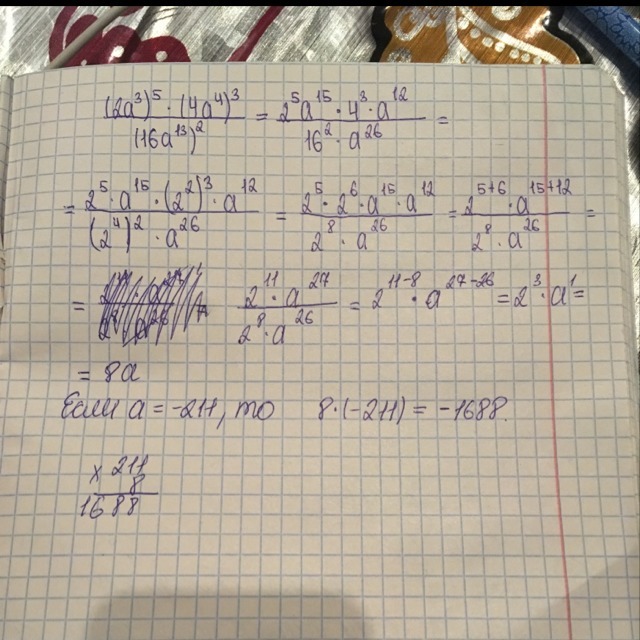 (2a³)⁵ · (4a⁴)³ / (16a¹³)² = 2⁵a¹⁵ · 4³ · a¹² / 16² · a²⁶ =
= 2⁵ · a¹⁵ · (2²)³ · a¹² / (2⁴)² · a²⁶ = 2⁵ · 2⁶ · a¹⁵ · a¹² / 2⁸ · a²⁶ = 2⁵⁺⁶ · a¹⁵⁺¹² / 2⁸ · a²⁶ =
= 2¹¹ · a²⁷ / 2⁸ · a²⁶ = 2¹¹⁻⁸ · a²⁷⁻²⁶ = 2³ · a¹ =
= 8a
Если a = -211, то 8 · (-211) = -1688.
× 211
8
1688